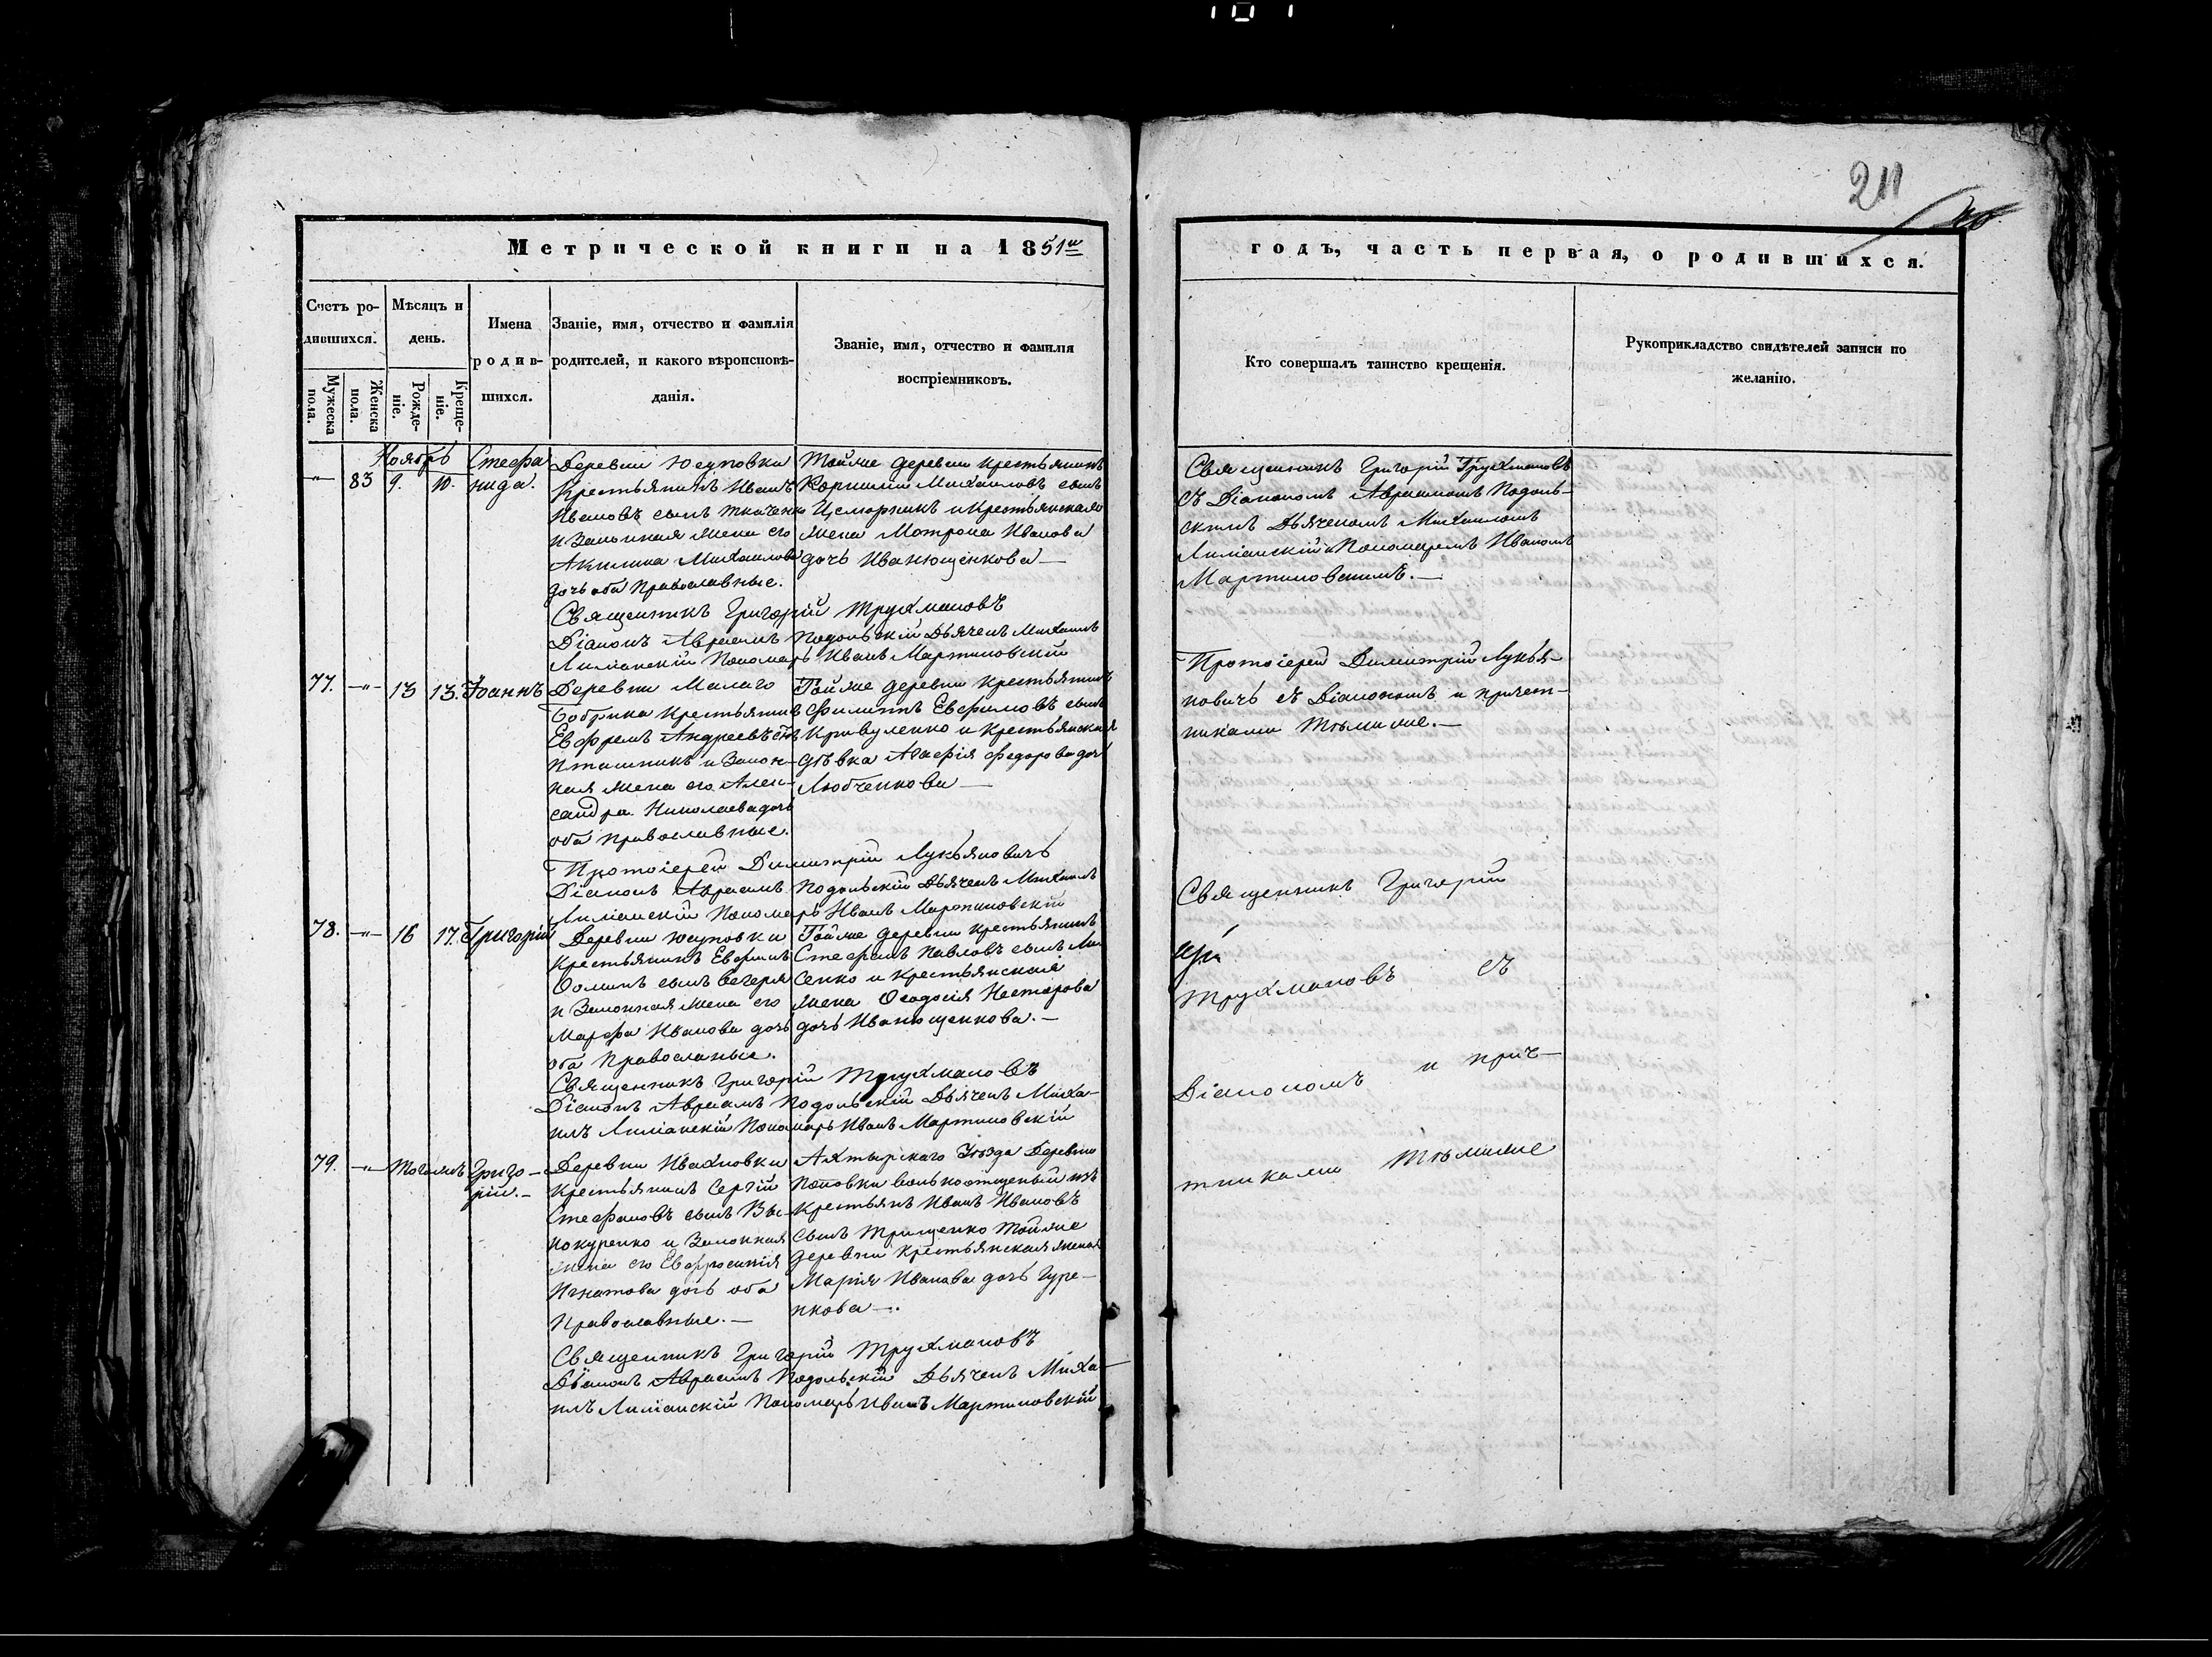 211
Метрической книги на 1851й
годъ, часть первая, о родившихся.
Счетъ родившихся.
Мужеска пола.
Женска пола.
Мѣсяцъ и день.
Рожденіе.
Крещеніе.
Имена родившихся.
Званіе, имя, отчество и фамилія родителей, и какого вѣроисповѣданія.
Званіе, имя, отчество и фамилія воспріемниковъ.
Кто совершалъ таинство крещенія.
Рукоприкладство свидѣтелей записи по желанію.
Ноябрь
83 9. 10.
Стефа
нида.
Деревни Юсуповки
Крестьянинъ Иванъ
Ивановъ сынъ Ткаченко
и Законная жена его
Акилина Михаилова
дочь оба Православные.
Тойже деревни крестьянинъ
Корнилий Михаиловъ сынъ
и Крестьянская
жена Мотрона Иванова
дочь Иванющенкова —
Священникъ Григорій Трухмановъ
съ Діакономъ Авраамомъ Подоль-
скимъ Дьячкомъ Михаиломъ
Пономаремъ Иваномъ
Мартиновскимъ. —
Священникъ Григорій Трухмановъ
Діаконъ Авраамъ Подольскій Дьячекъ Михаилъ
Пономарь Иванъ Мартиновскій
77. —"— 13 13. Іоаннъ
Деревни Малаго
Бобрика Крестьянинъ
Ефремъ Андреевъ сынъ
Пташникъ и Закон-
ная жена его Алек-
сандра Николаева дочь
оба Православные.
Тойже деревни крестьянинъ
Филиппъ Ефимовъ сынъ
Кривуленко и крестьянская
дѣвка Агафія Федорова дочь
Любченкова —
Протоіерей Димитрій Лукья-
новичь съ Діакономъ и причет-
никами тѣмиже. —
Протоіерей Димитрій Лукьяновичь
Діаконъ Авраамъ Подольскій Дьячекъ Михаилъ
Пономарь Иванъ Мартиновскій
78. —"— 16 17. Григорій
Деревни Юсуповки
Крестьянинъ Евфимъ
Фоминъ сынъ Вечеря
и Законная жена его
Марфа Иванова дочь
оба Православные.
Тойже деревни крестьянинъ
Стефанъ Павловъ сынъ Ли
сенко и крестьянская
жена Феодосія Нестерова
дочь Иванющенкова. —
Священникъ Григорій
Трухмановъ съ
Діакономъ и прич-
тниками тѣмиже
Священникъ Григорій Трухмановъ
Діаконъ Авраамъ Подольскій Дьячекъ Миха-
илъ Пономарь Иванъ Мартиновскій
79. —"— Григо-
рій. —
Деревни Ивахновки
Крестьянинъ Сергій
Стефановъ сынъ Вы-
покуренко и Законная
жена его Евфросинія
Игнатова дочь оба
Православные. —
Ахтырскаго Уѣзда Деревни
Поповки изъ
крестьянъ Иванъ Ивановъ
сынъ Трищенко тойже
деревни крестьянская жена
Марія Иванова дочь Гуре-
нкова —.
Священникъ Григорій Трухмановъ
Діаконъ Авраамъ Подольскій Дьячекъ Миха-
илъ Пономарь Иванъ Мартиновскій